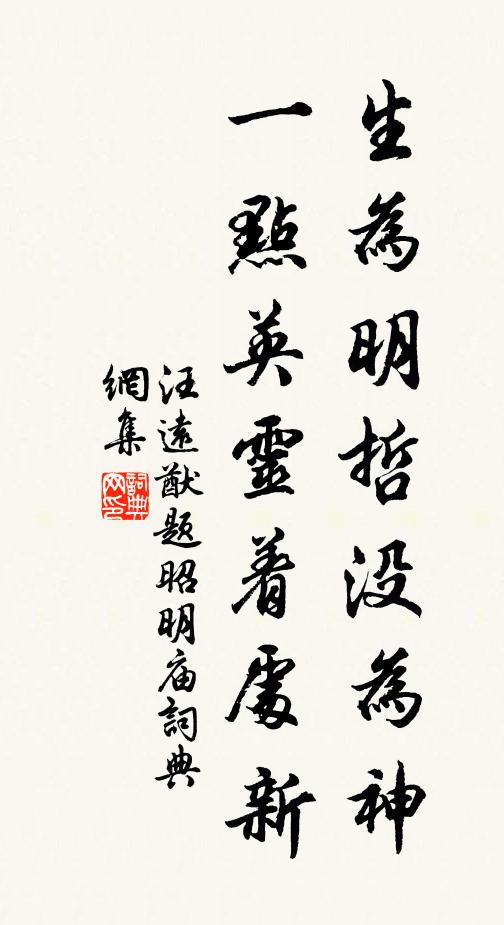 生為明哲没為神
一點英靈着處新
汪遠猷題昭明庙詞典
網集
詞典
网印